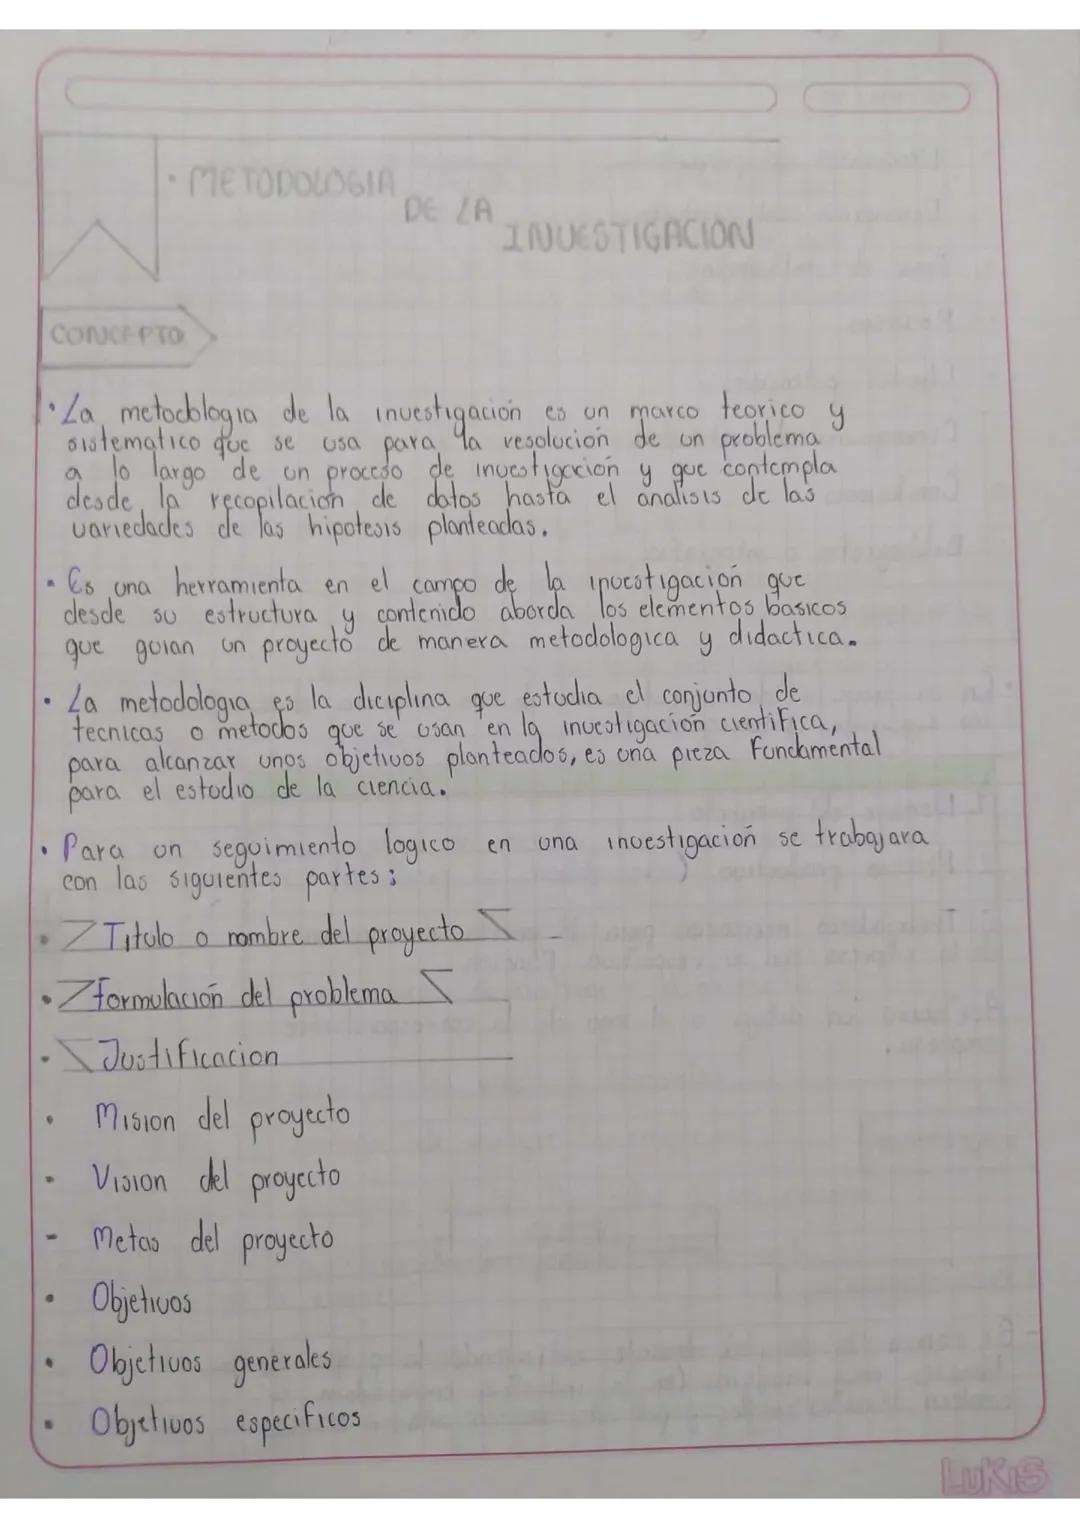 · METODOLOGIA
DE LA
INVESTIGACION
CONCEPTO
· La metodologia de la investigación es un marco teorico y
sistematico que se usa para la resolución de un problema
a lo largo de un proceso de investigación y que contempla
desde la recopilación de datos hasta el analisis de las
variedades de las hipotesis planteadas.
· Es una herramienta en el campo de la investigación que
desde su estructura y contenido aborda los elementos basicos
que guian un proyecto de manera metodologica y didactica.
· La metodologia es la diciplina que estudia el conjunto de
tecnicas o metodos que se usan en la investigación cientifica,
para alcanzar unos objetivos planteados, es una pieza fundamental
para el estudio de la ciencia.
· Para un seguimiento logico en una investigación se trabajara
con las siguientes partes:
· Titulo o nombre del proyecto
· formulación del problema
· Justificacion
· Mision del proyecto
· Vision del proyecto
- Metas del proyecto
· Objetivos
· Objetivos generales
· Objetivos especificos
LUKIS